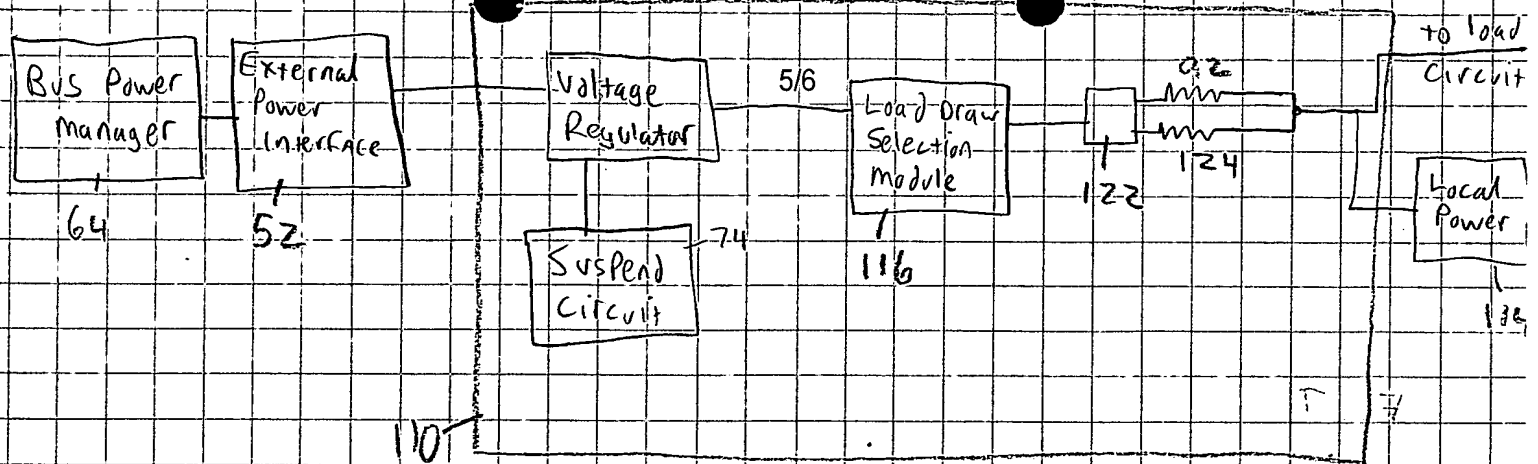 Bus Power
Manager
64
External
Power
Interface
52
Voltage
Regulator
5/6
Suspend
Circuit
74
Load Draw
Selection
Module
116
122
124
to load
Circuit
Local
Power
110